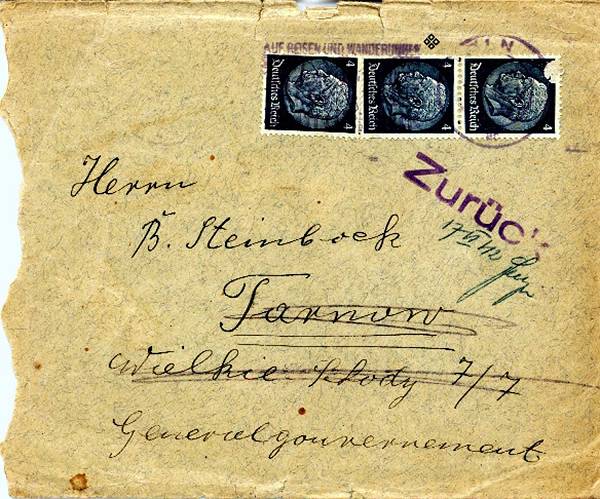 AUF REISEN UND WANDERUNGEN
Deutsches Reich 4 4
Deutsches Reich 4 4
Deutsches Reich 4
Zurück
Herrn
B. Steinbock
Tarnow
Wielkie Schody 7/7
Generalgouvernement